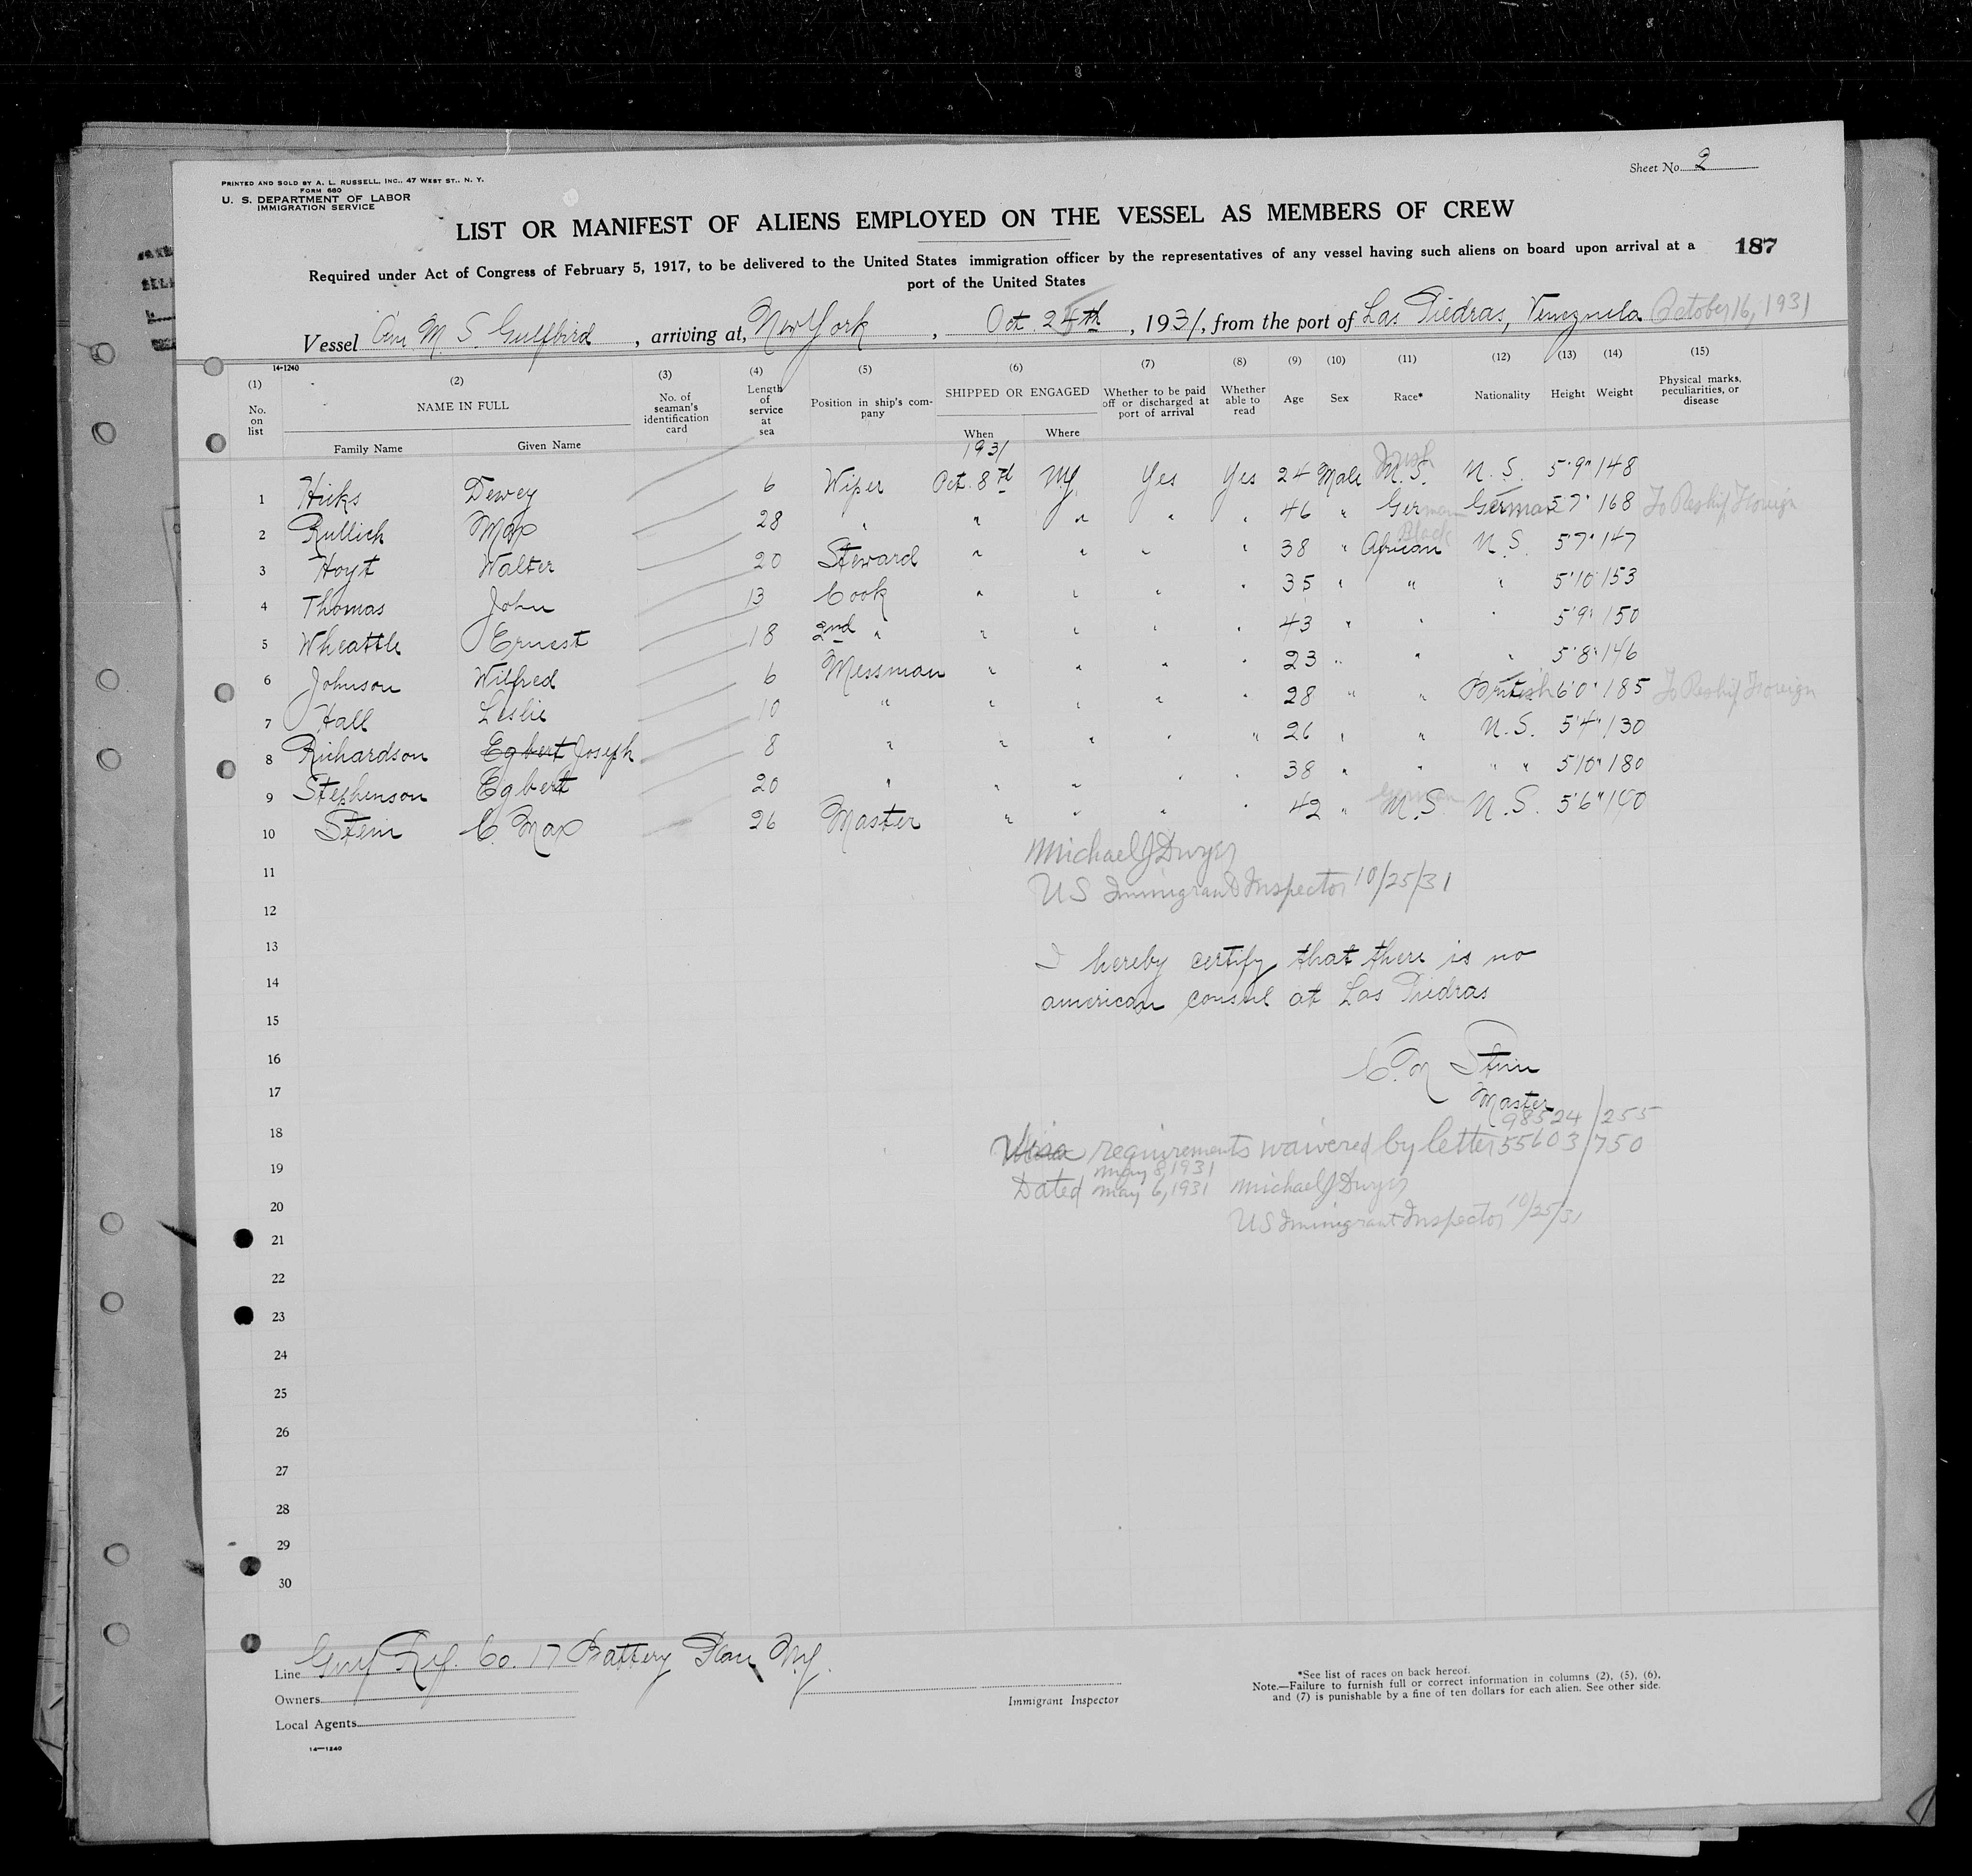 Sheet No. 2
PRINTED AND SOLD BY A. L. RUSSELL, INC., 47 WEST ST., N. Y.
FORM 680
U. S. DEPARTMENT OF LABOR
IMMIGRATION SERVICE
LIST OR MANIFEST OF ALIENS EMPLOYED ON THE VESSEL AS MEMBERS OF CREW
187
Required under Act of Congress of February 5, 1917, to be delivered to the United States immigration officer by the representatives of any vessel having such aliens on board upon arrival at a
port of the United States
Vessel Am. M. S. Gulfbird, arriving at, New York, Oct. 25th, 1931, from the port of Las Piedras, Venezuela October 16, 1931
14-1240
(1) (2) (3) (4) (5) (6) (7) (8) (9) (10) (11) (12) (13) (14) (15)
No. on list
NAME IN FULL
Family Name Given Name
No. of seaman's identification card
Length of service at sea
Position in ship's company
SHIPPED OR ENGAGED
When Where
Whether to be paid off or discharged at port of arrival
Whether able to read
Age Sex Race* Nationality Height Weight
Physical marks, peculiarities, or disease
1931
1 Hicks Dewey 6 Wiper Oct. 8th NY Yes Yes 24 Male U.S. Irish U.S. 5'9" 148
2 Rullich Max 28 " " " " " 46 " German German 5'7" 168 To Reship Foreign
3 Hoyt Walter 20 Steward " " " " 38 " African Black U.S. 5'7" 147
4 Thomas John 13 Cook " " " " 35 " " " 5'10 153
5 Wheattle Ernest 18 2nd " " " " " 43 " " " 5'9" 150
6 Johnson Wilfred 6 Messman " " " " 23 " " " 5'8" 146
7 Hall Leslie 10 " " " " " 28 " " British 6'0" 185 To Reship Foreign
8 Richardson Egbert Joseph 8 " " " " " 26 " " U.S. 5'4" 130
9 Stephenson Egbert 20 " " " " " 38 " " " " 5'10" 180
10 Stein C. Max 26 Master " " " " 42 " U.S. German U.S. 5'6" 190
11
Michael J Dwyer
US Immigrant Inspector 10/25/31
12
13
I hereby certify that there is no
14
american consul at Las Piedras
15
16
C. M Stein
17
Master
98524/255
18
Visa requirements waivered by letter 55603/750
19
May 8, 1931
Dated May 6, 1931 Michael J Dwyer
20
US Immigrant Inspector 10/25/31
21
22
23
24
25
26
27
28
29
30
Line Gulf Ref. Co. 17 Battery Place N.Y.
Owners
Local Agents
Immigrant Inspector
*See list of races on back hereof.
Note.—Failure to furnish full or correct information in columns (2), (5), (6),
and (7) is punishable by a fine of ten dollars for each alien. See other side.
14—1240